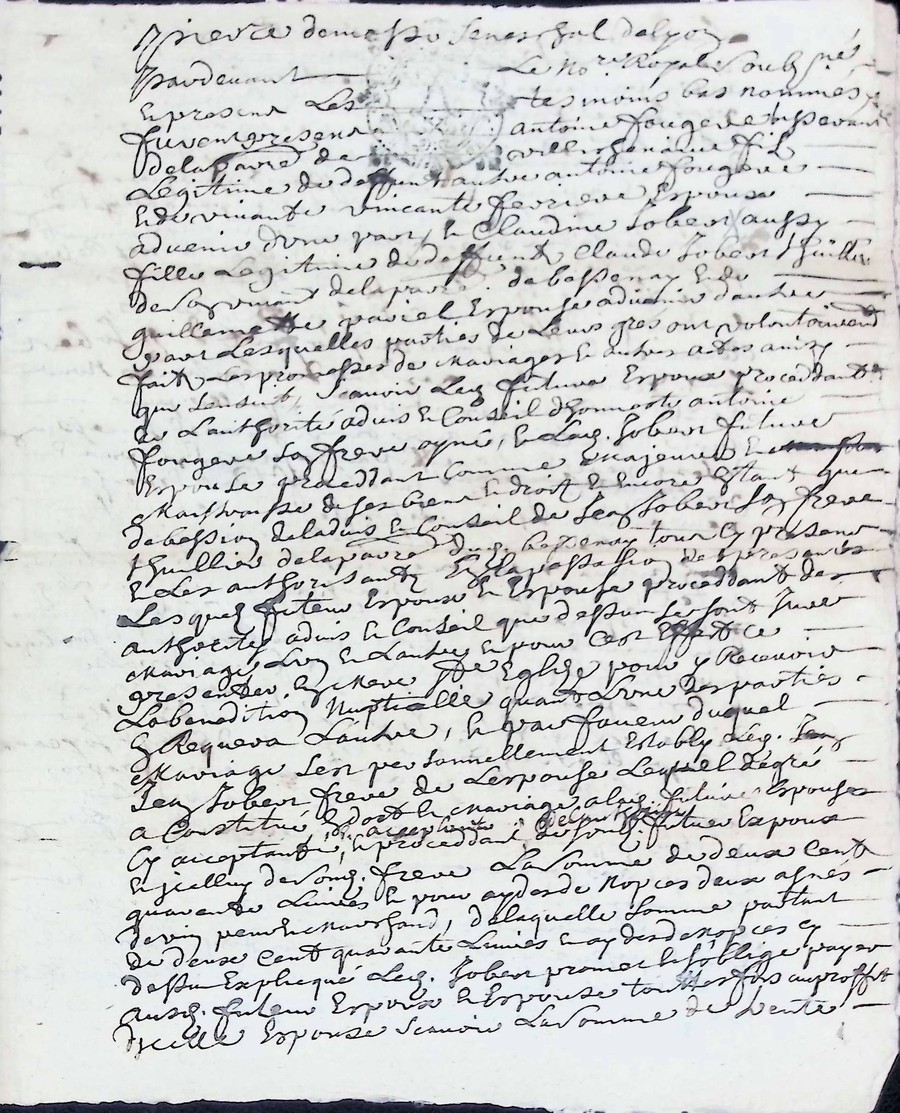 Pierre demasso Seneschal delyon
Pardevant Le No.re Royal Soubs.né
En presence Les tesmoins bas nommés
furent presens antoine fougere
delaparre de ville fil
Legitime de deffunt autre antoine fougere
Et de vivante vincante ferriere Espoux
advenir dune part, Et Claudine Jobert aussy
fille Legitime de deffunt Claude Jobert thuillier
de Son vivant delaparr. debessenay Et de
guillemette pariel Espouse advenir dautre
part Lesquelles parties de Leurs grés ont volontairemt
fait Les promesses de Mariages Et autres actes ainsy
que Sensuit, Scavoir Led. futur Espoux procedant
de Lauthorité advis Et Conseil dhonneste antoine
fougere Son frere ayné, Et Lad. Jobert future
Espouse procedant Comme Majeure Et
Maistresse deses biens Et droits Et Encore Estant que
de besoin deladvis Et Conseil de Jean Jobert Son frere
thuillier delaparre dud. bessenay tous Cy presens
Et Les authorisants En Lapassation des presentes
Lesquels futeur Espoux Et Espouse procedant des
authorités advis Et Conseil que dessus Se sont Jures
Mariage Lun Et Lautre Et pour Cet Effect Se
presenter En Mere Ste Eglise pour y Recevoir
Labenedition Nuptialle quant Lune Des parties
En Requera Lautre, Et par faveur duquel
Mariage Sest personnellement Estably Led. Jean
Jean Jobert frere de Lespouse Lequel degré
a Constitué Et dotté En Mariage alad. future Espouse
Cy acceptante, Et procedant de Sond. futur Espoux
Et Jcelluy de Sond. frere La Somme de deux Cent
quarante Livres Et pour aydes de Nopces deux asnés
devin pur Et Marchand, delaquelle Somme partant
de deux Cent quarante Livres En aydes de Nopces Cy
dessus Expliqué Led. Jobert promet Et Soblige payer
ausd. futeur Espoux Et Espouse touttesfois auproffit
dicelle Espouse Scavoir La Somme de trente